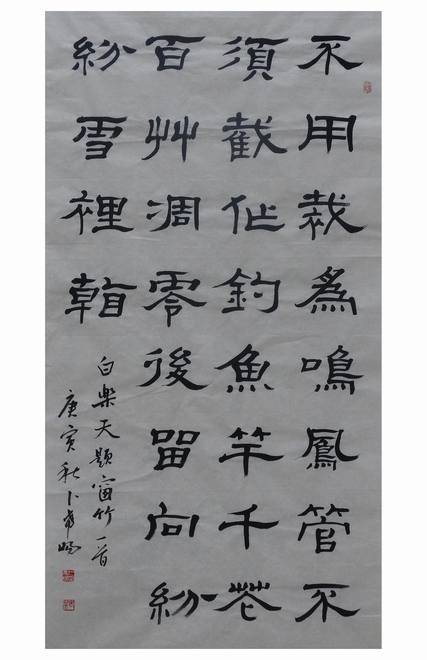 不用裁為鳴鳳管不
須截作釣魚竿千花
百艸凋零後留向紛
紛雪裡看
白樂天題窗竹一首
庚寅秋卜希暘